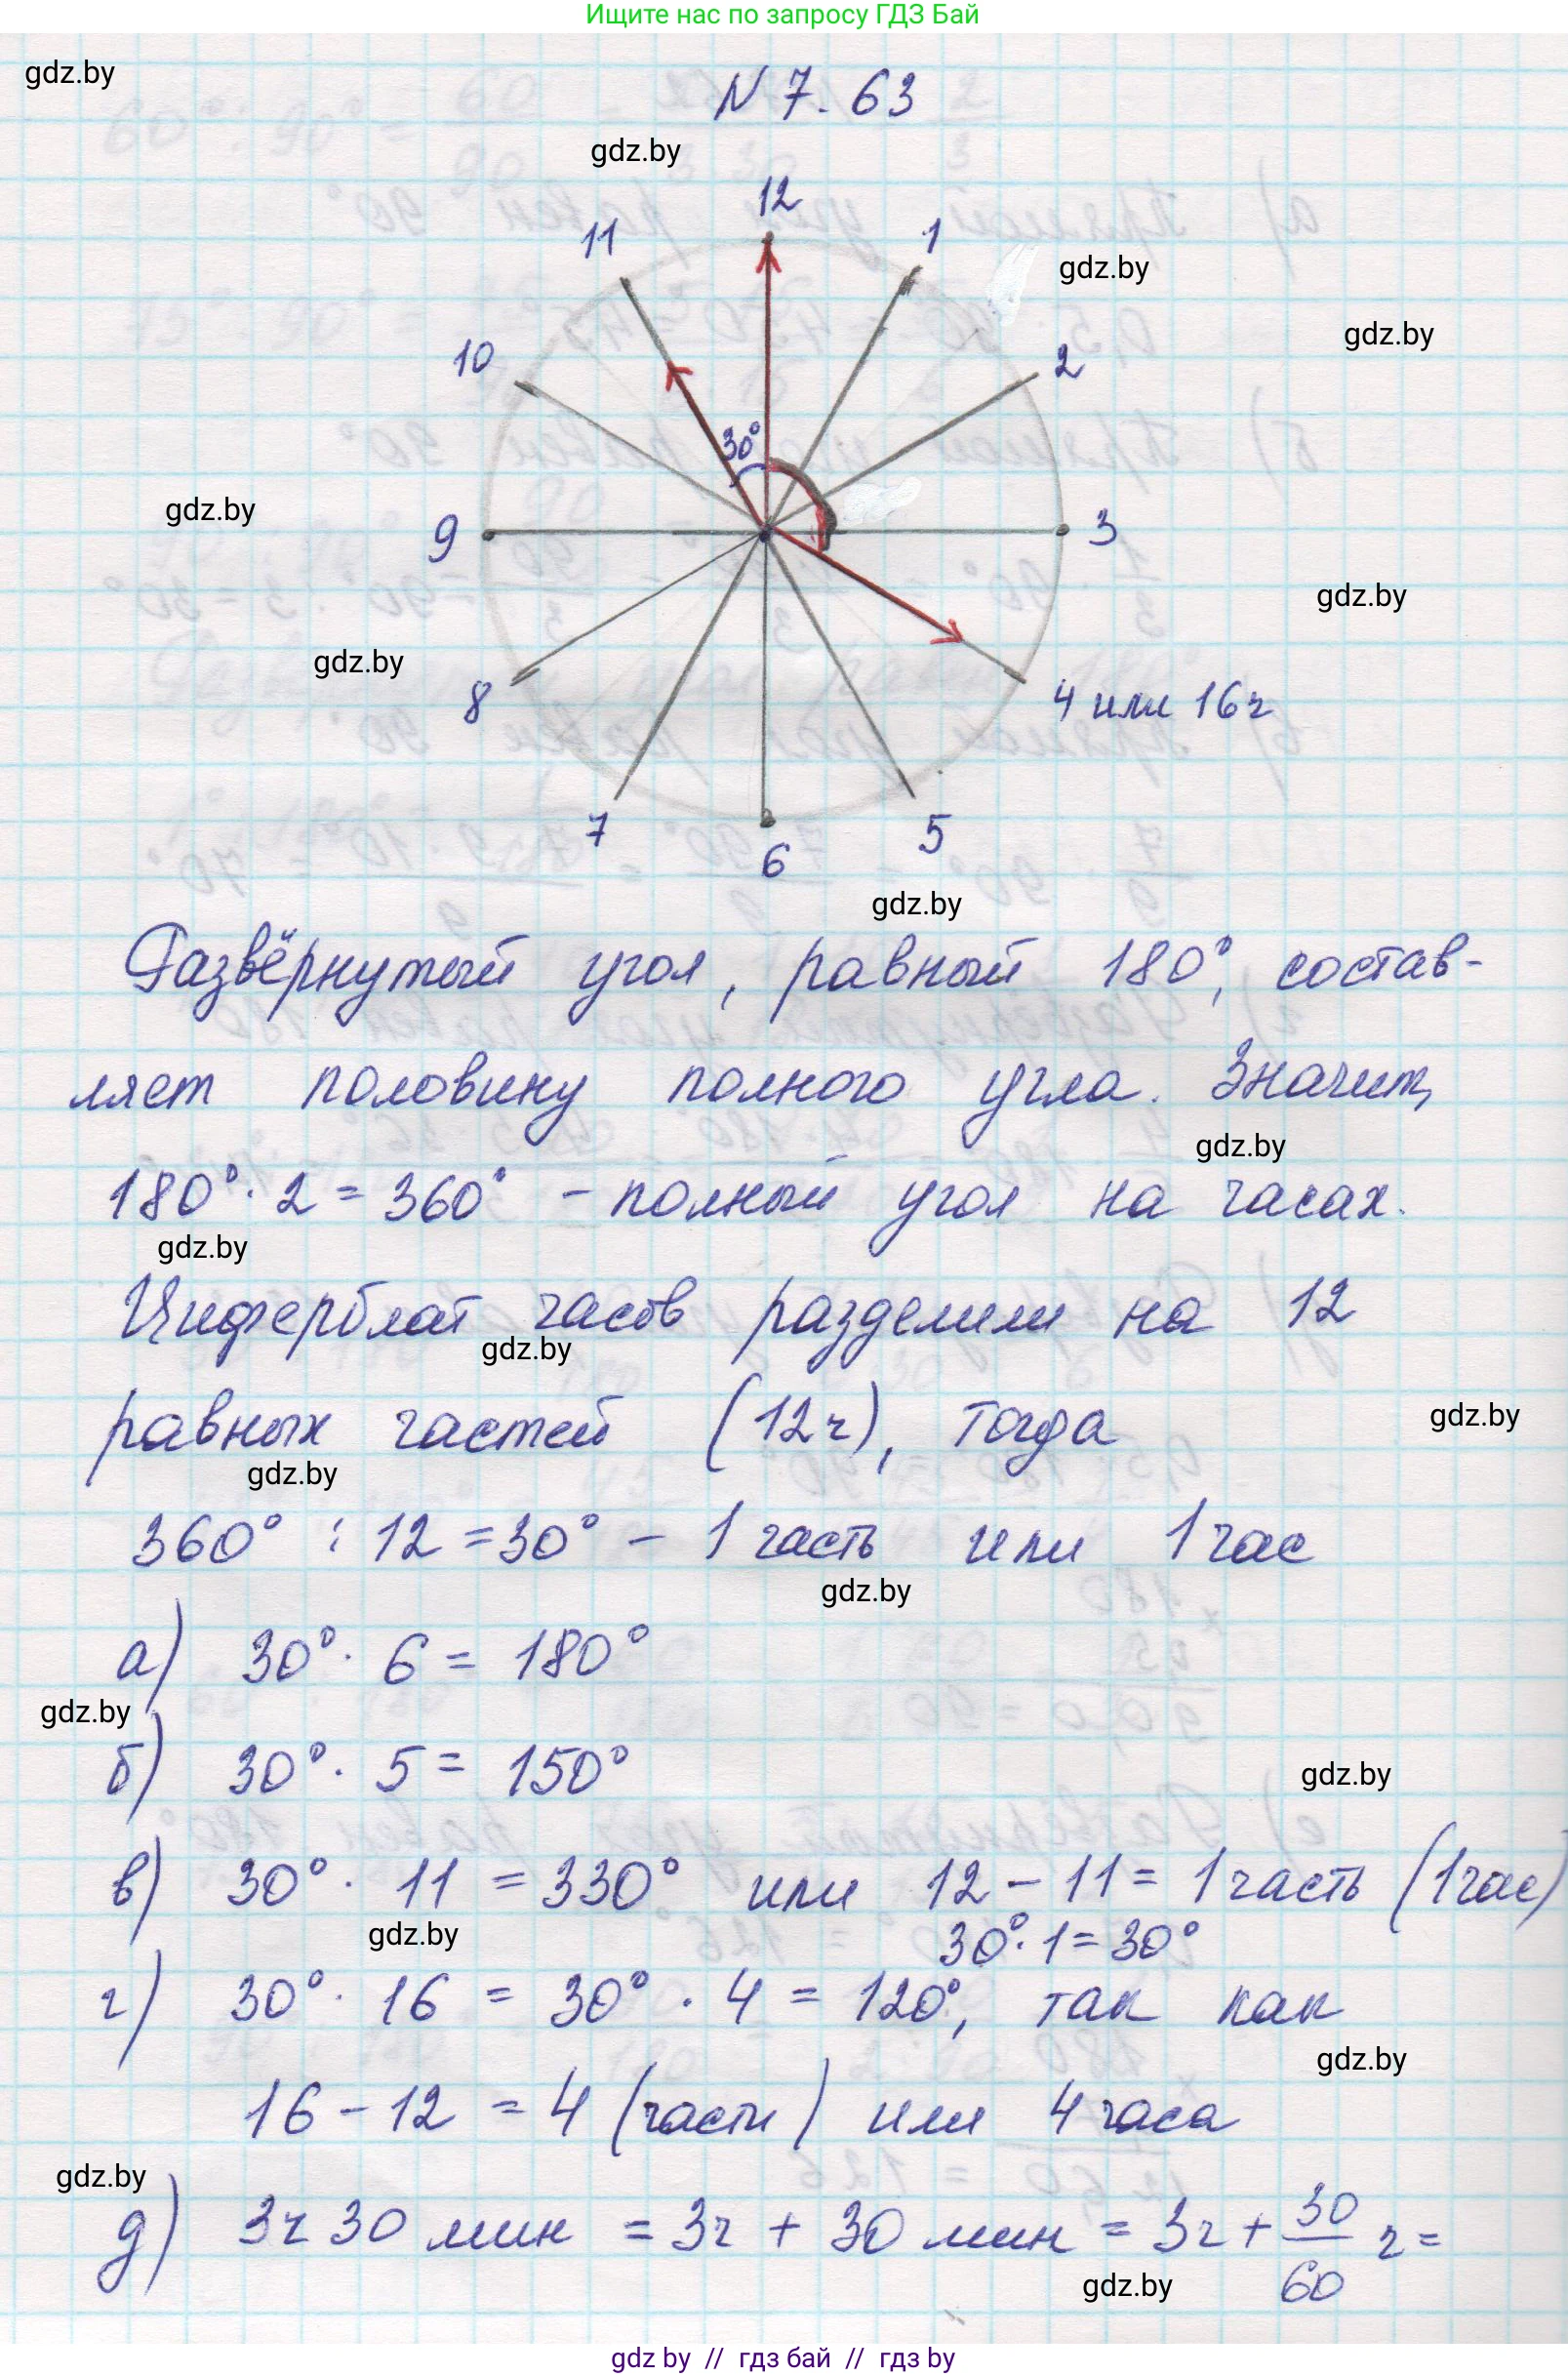 Ищите нас по запросу ГДЗ Бай
gdz.by
N 7.63
gdz.by
12
11
1
gdz.by
gdz.by
10
2
30°
gdz.by
9
3
gdz.by
gdz.by
8
4 или 16ч
7
5
6
gdz.by
Развёрнутый угол, равный 180°, состав-
ляет половину полного угла. Значит,
gdz.by
180° · 2 = 360° - полный угол на часах.
gdz.by
Циферблат часов разделили на 12
gdz.by
равных частей (12ч), тогда
gdz.by
gdz.by
360° : 12 = 30° - 1 часть или 1 час
gdz.by
а) 30° · 6 = 180°
gdz.by
б) 30° · 5 = 150°
gdz.by
в) 30° · 11 = 330° или 12 - 11 = 1 часть (1 час)
gdz.by
30° · 1 = 30°
г) 30° · 16 = 30° · 4 = 120°, так как
gdz.by
16 - 12 = 4 (части) или 4 часа
gdz.by
д) 3ч 30 мин = 3ч + 30 мин = 3ч + 30/60 ч =
gdz.by
gdz.by // гдз бай // гдз by